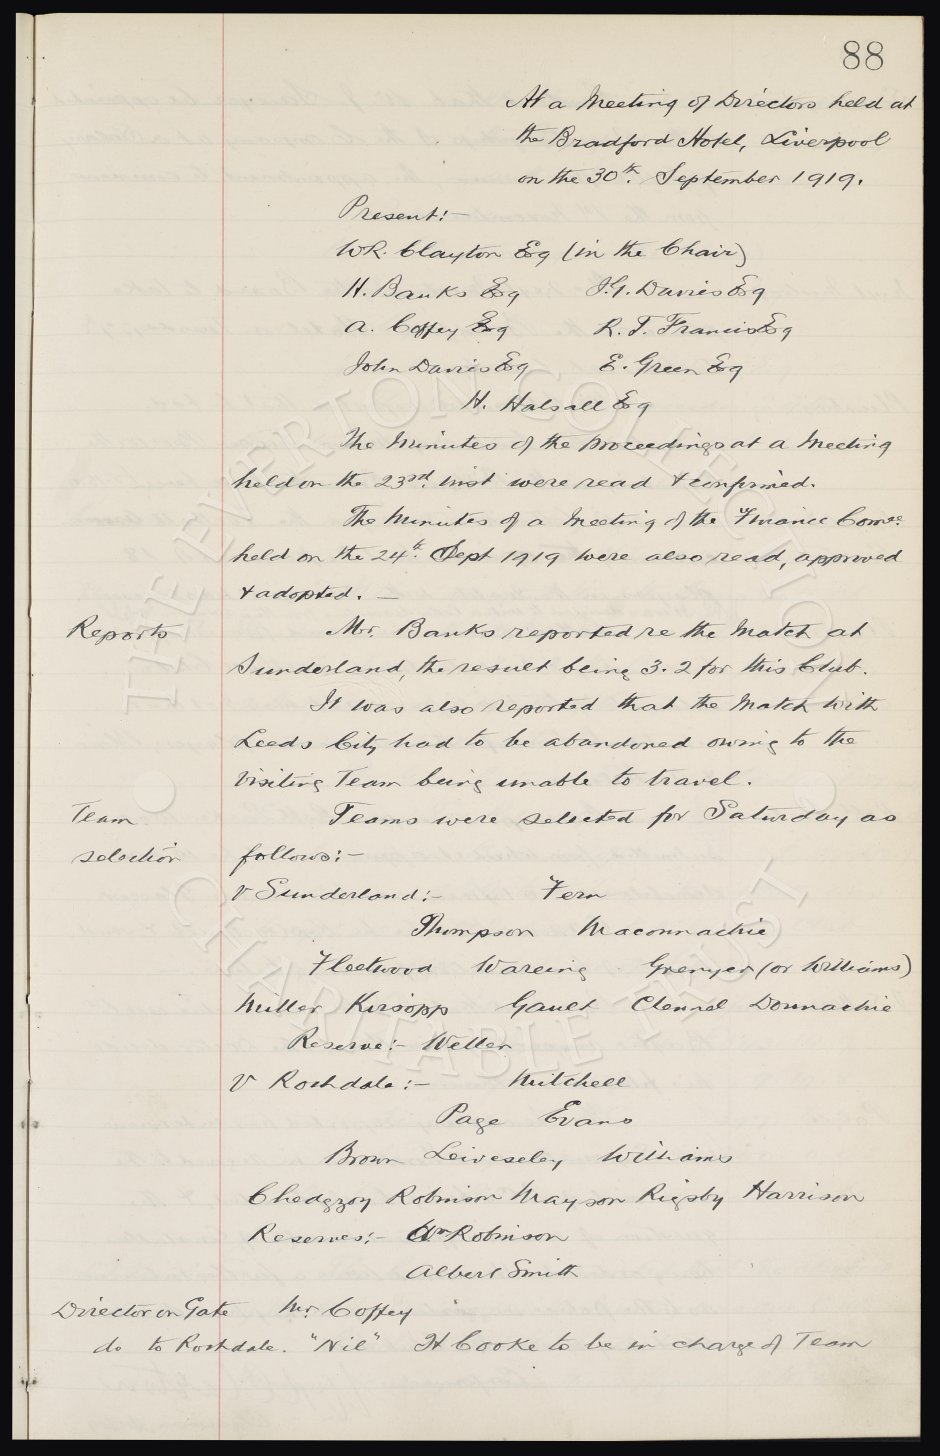 88
At a Meeting of Directors held at
the Bradford Hotel, Liverpool
on the 30th. September 1919.
Present:-
W.R. Clayton Esq (in the Chair)
H. Banks Esq J.G. Davies Esq
A. Coffey Esq R. T. Francis Esq
John Davies Esq E. Green Esq
H. Halsall Esq
The Minutes of the proceedings at a Meeting
held on the 23rd. inst were read & confirmed.
The Minutes of a Meeting of the Finance Comee.
held on the 24th. Sept 1919 were also read, approved
& adopted. —
Reports Mr. Banks reported re the Match at
Sunderland, the result being 3. 2 for this Club.
It was also reported that the Match with
Leeds City had to be abandoned owing to the
Visiting Team being unable to travel.
Team Teams were selected for Saturday as
selection follows:-
v Sunderland:- Fern
Thompson Maconnachie
Fleetwood Wareing Grenyer (or Williams)
Miller Kirsopp Gault Clennel Donnachie
Reserve:- Weller
v Rochdale:- Mitchell
Page Evans
Brown Leiveseley Williams
Chedgzoy Robinson Mayson Rigsby Harrison
Reserves:- Wm Robinson
Albert Smith
Director on Gate Mr. Coffey
do to Rochdale. "Nil" H Cooke to be in charge of Team
THE EVERTON COLLECTION
CHARITABLE TRUST